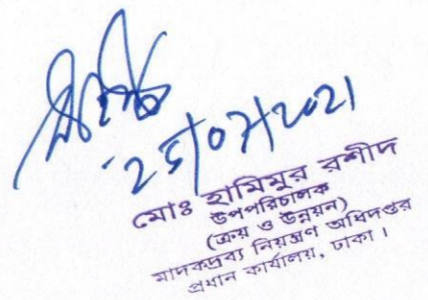 ২৬/০৭/২০২১
মোঃ হামিমুর রশীদ
উপপরিচালক
(ক্রয় ও উন্নয়ন)
মাদকদ্রব্য নিয়ন্ত্রণ অধিদপ্তর
প্রধান কার্যালয়, ঢাকা।